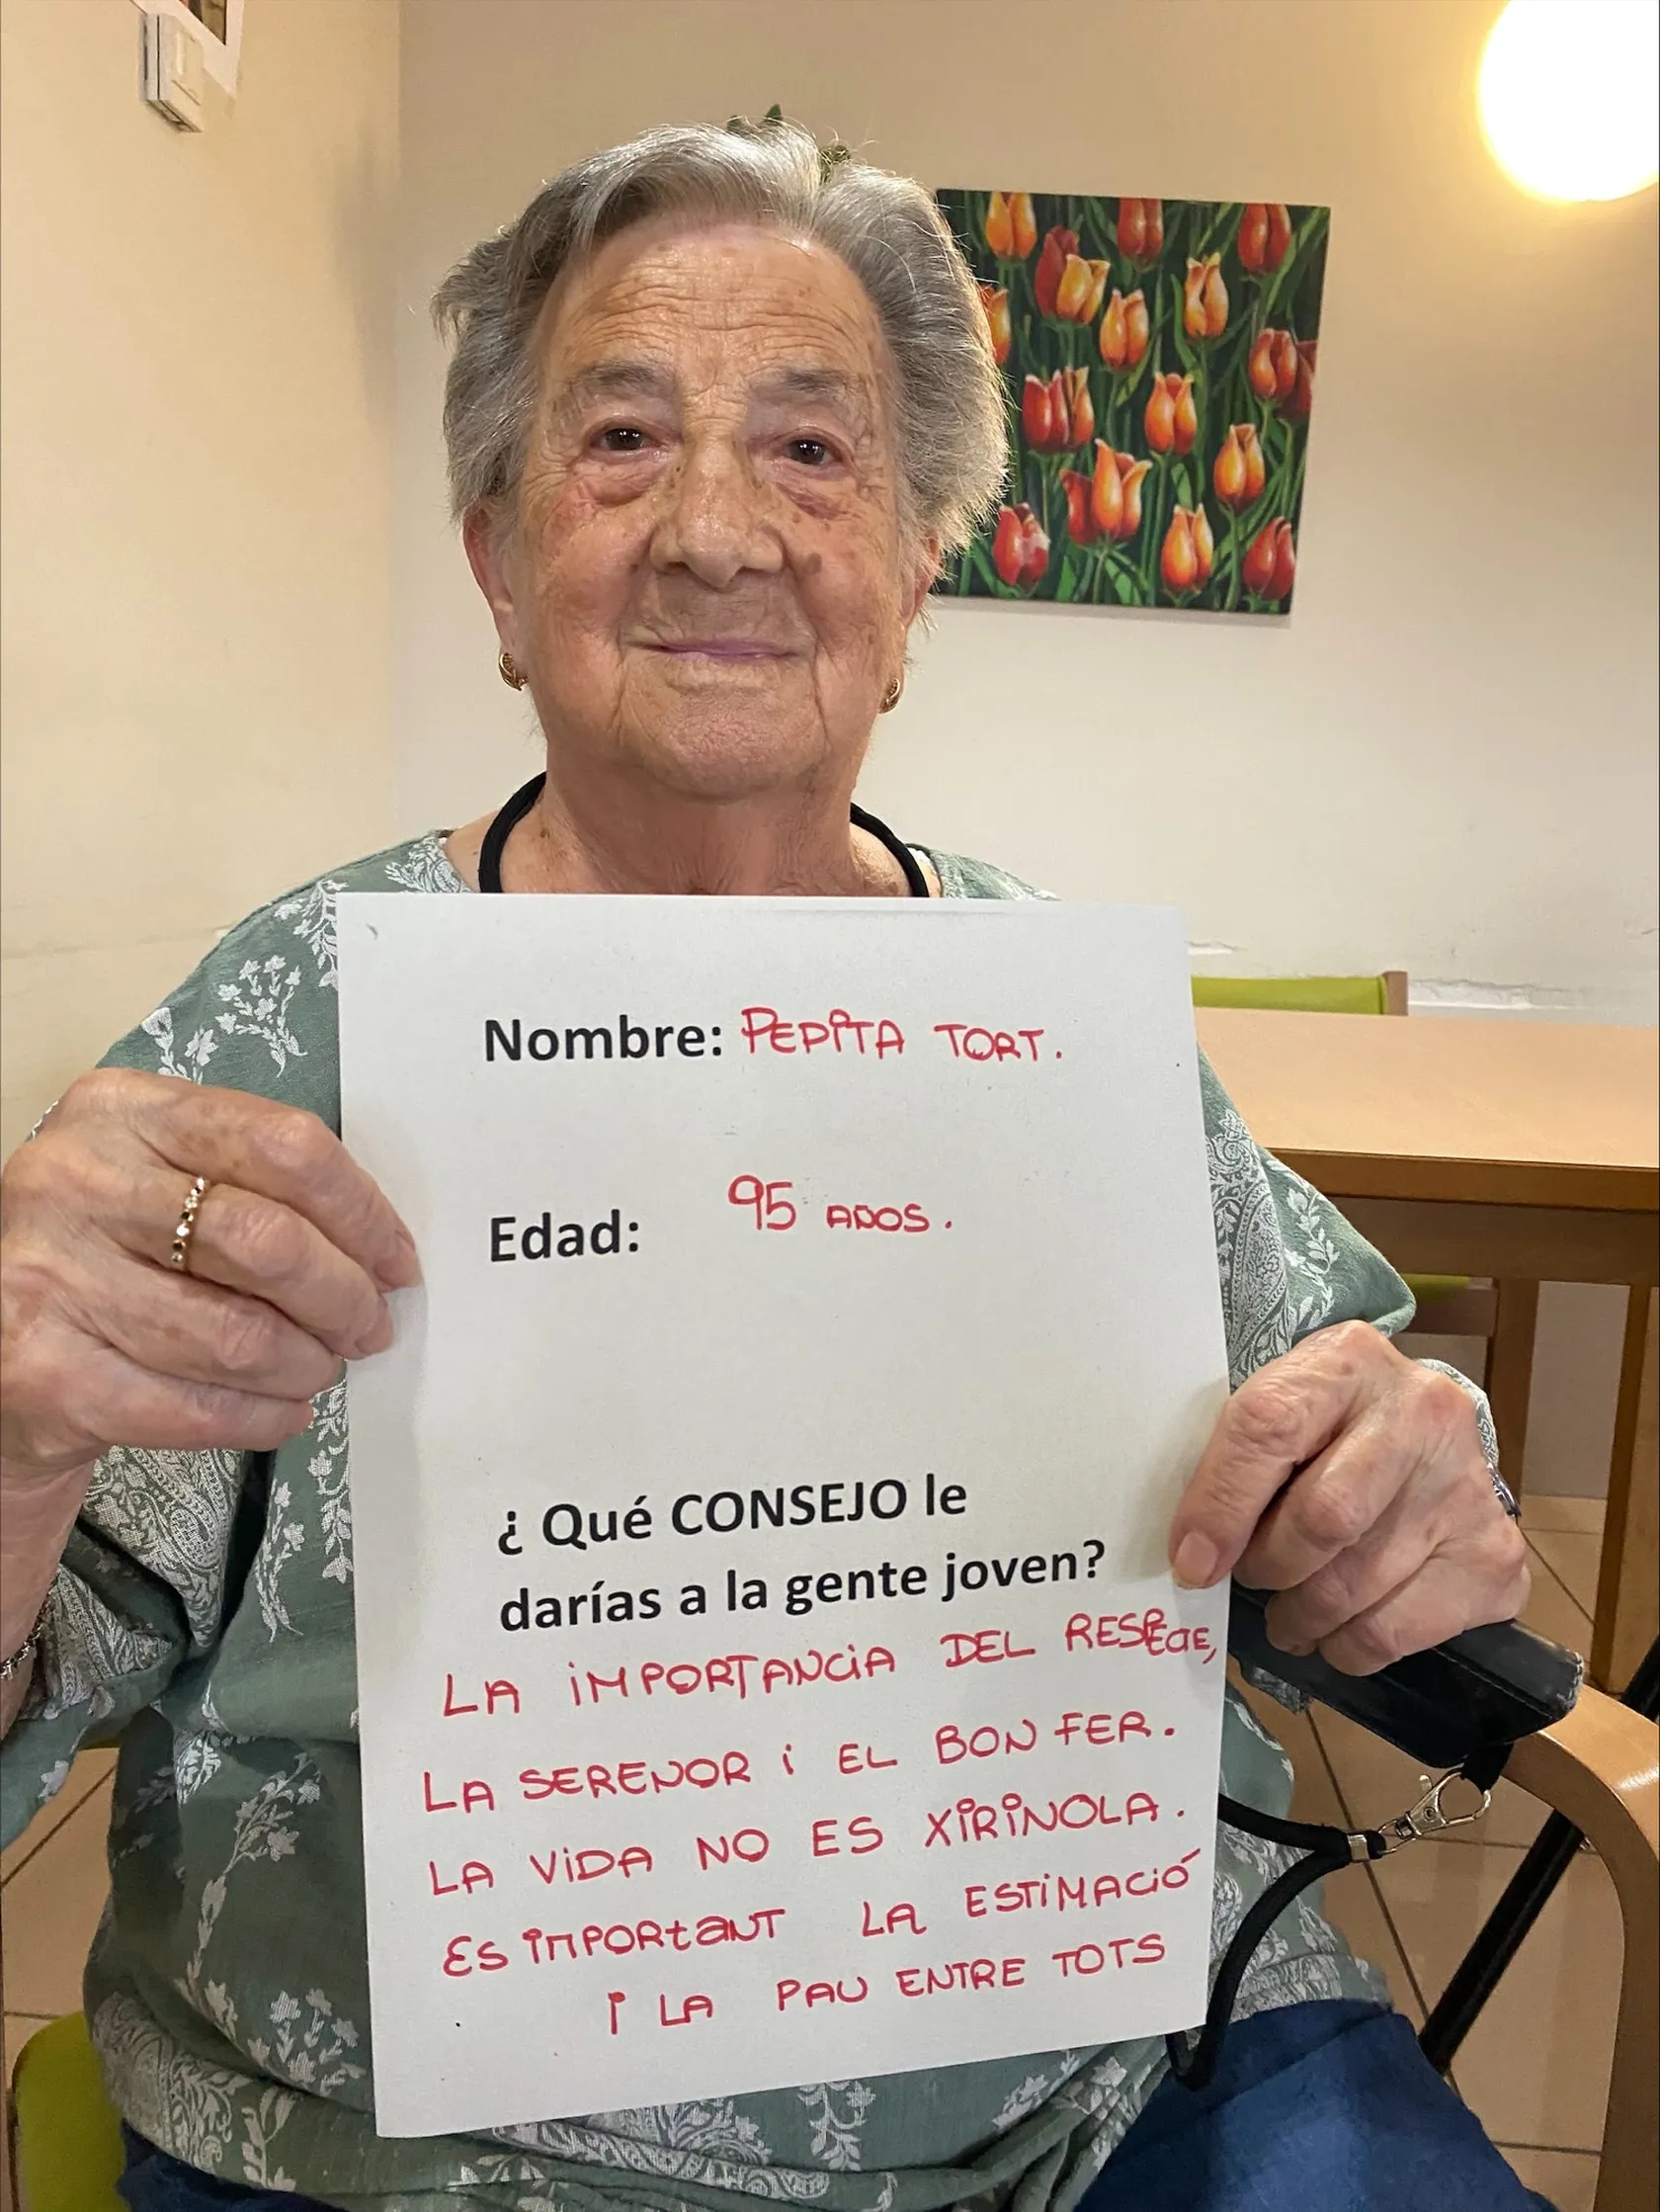 Nombre: PEPITA TORT.
Edad: 95 AÑOS.
¿ Qué CONSEJO le
darías a la gente joven?
LA IMPORTANCIA DEL RESPECTE,
LA SERENOR I EL BON FER.
LA VIDA NO ES XIRINOLA.
ES IMPORTANT LA ESTIMACIÓ
I LA PAU ENTRE TOTS